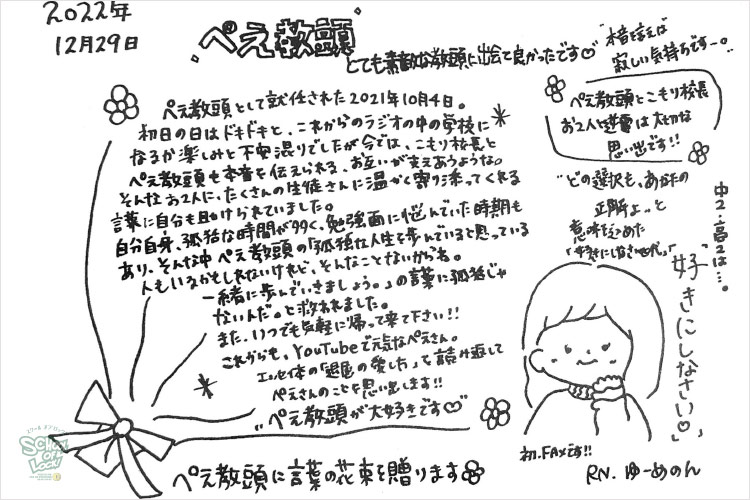 2022年
12月29日
ぺえ教頭
とても素敵な教頭に出会えて良かったです♡
"本音を言えば
寂しい気持ちです…。"
ぺえ教頭として就任された2021年10月4日。
初日の日はドキドキと、これからのラジオの中の学校に
なるか楽しみと不安混りでしたが今では、こもり校長と
ぺえ教頭も本音を伝えられる、お互いが支えあうような。
そんなお2人に、たくさんの生徒さんに温かく寄り添ってくれる
言葉に自分も助けられていました。
自分自身、孤独な時間が多く、勉強面に悩んでいた時期も
あり、そんな中ぺえ教頭の「孤独な人生を歩んでいると思っている
人もいるかもしれないけれど、そんなことないからね。
一緒に歩んでいきましょう。」の言葉に孤独じゃ
ないんだ。と救われました。
また、いつでも気軽に帰って来て下さい!!
これからも、YouTubeで元気なぺえさん。
エッセイ本の「退屈の愛し方」を読み返して
ぺえさんのことを思い出します!!
"ぺえ教頭が大好きです♡"
ぺえ教頭とこもり校長
お2人と逆電は大切な
思い出です!!
"どの選択も、あなたの
正解よ。"と
意味を込めた
中2・高2は…。
"好きにしなさい♡"
初.FAXです!!
RN. ゆーめのん
ぺえ教頭に言葉の花束を贈ります
SCHOOL OF LOCK!